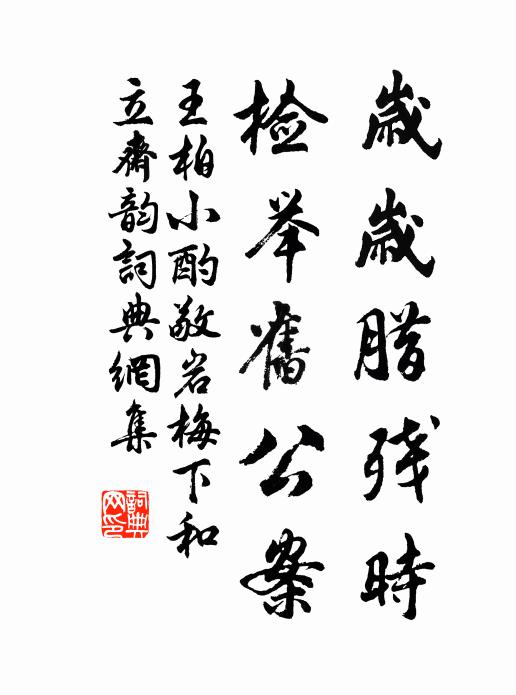 歲歲腊残時
檢举舊公案
王柏小酌敬岩梅下和
立齋韵詞典網集
詞典网印